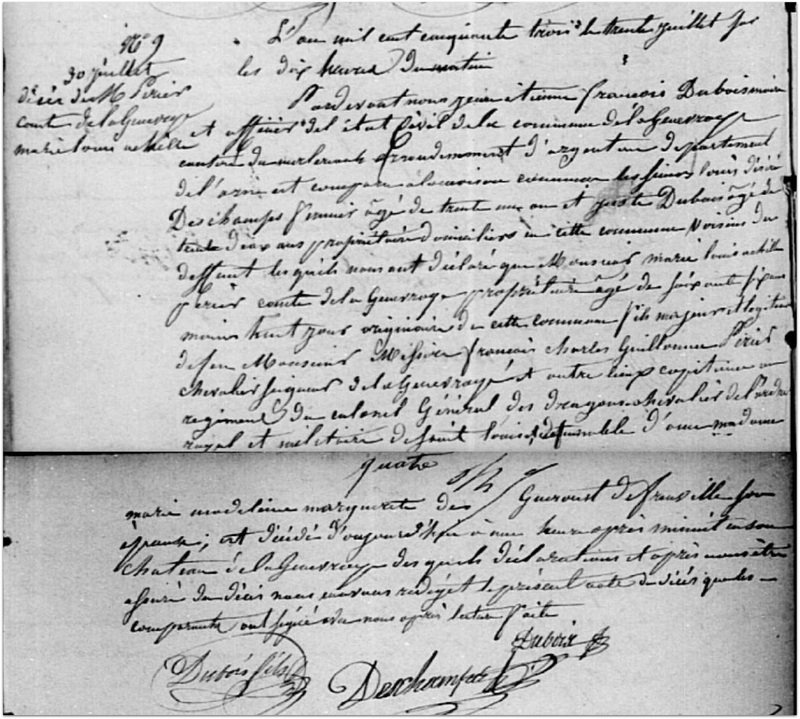 N° 9
30 juillet
décès de M Périer
comte de la Genevraye
marie louis achille
L'an mil cent cinquante trois le trente juillet par
les dix heures du matin
Pardevant nous jean etienne françois Dubois maire
et officier de l'état civil de la commune de la Genevraye
canton du merlerault arrondissement d'argentan département
de l'orne est comparu à la maison commune les sieurs louis désiré
Deschamps fermier âgé de trente un an et juste Dubois âgé de
trente deux ans propriétaire domiciliés en cette commune voisins du
deffunt lesquels nous ont déclaré que Monsieur marie louis achille
Périer comte de la Genevraye propriétaire âgé de soixante six ans
moins huit jours originaire de cette commune fils majeur et légitime
de feu Monsieur Messire françois Charles Guillaume Périer
chevalier seigneur de la Genevraye et autre lieux capitaine au
regiment du colonel Général des dragons chevalier de l'ordre
royal et militaire de saint louis et de noble d'ame madame
quatre
marie madeleine marguerite des Guéroust de freuville son
épouse; est décédé d'aujourd'hui à une heure après minuit en son
chateau de la Genevraye des quels déclarations et après nous être
assuré du décès nous en avons redigé le présent acte de décès que les
comparants ont signé avec nous après lecture faite
Dubois
Dubois fils
Deschamps